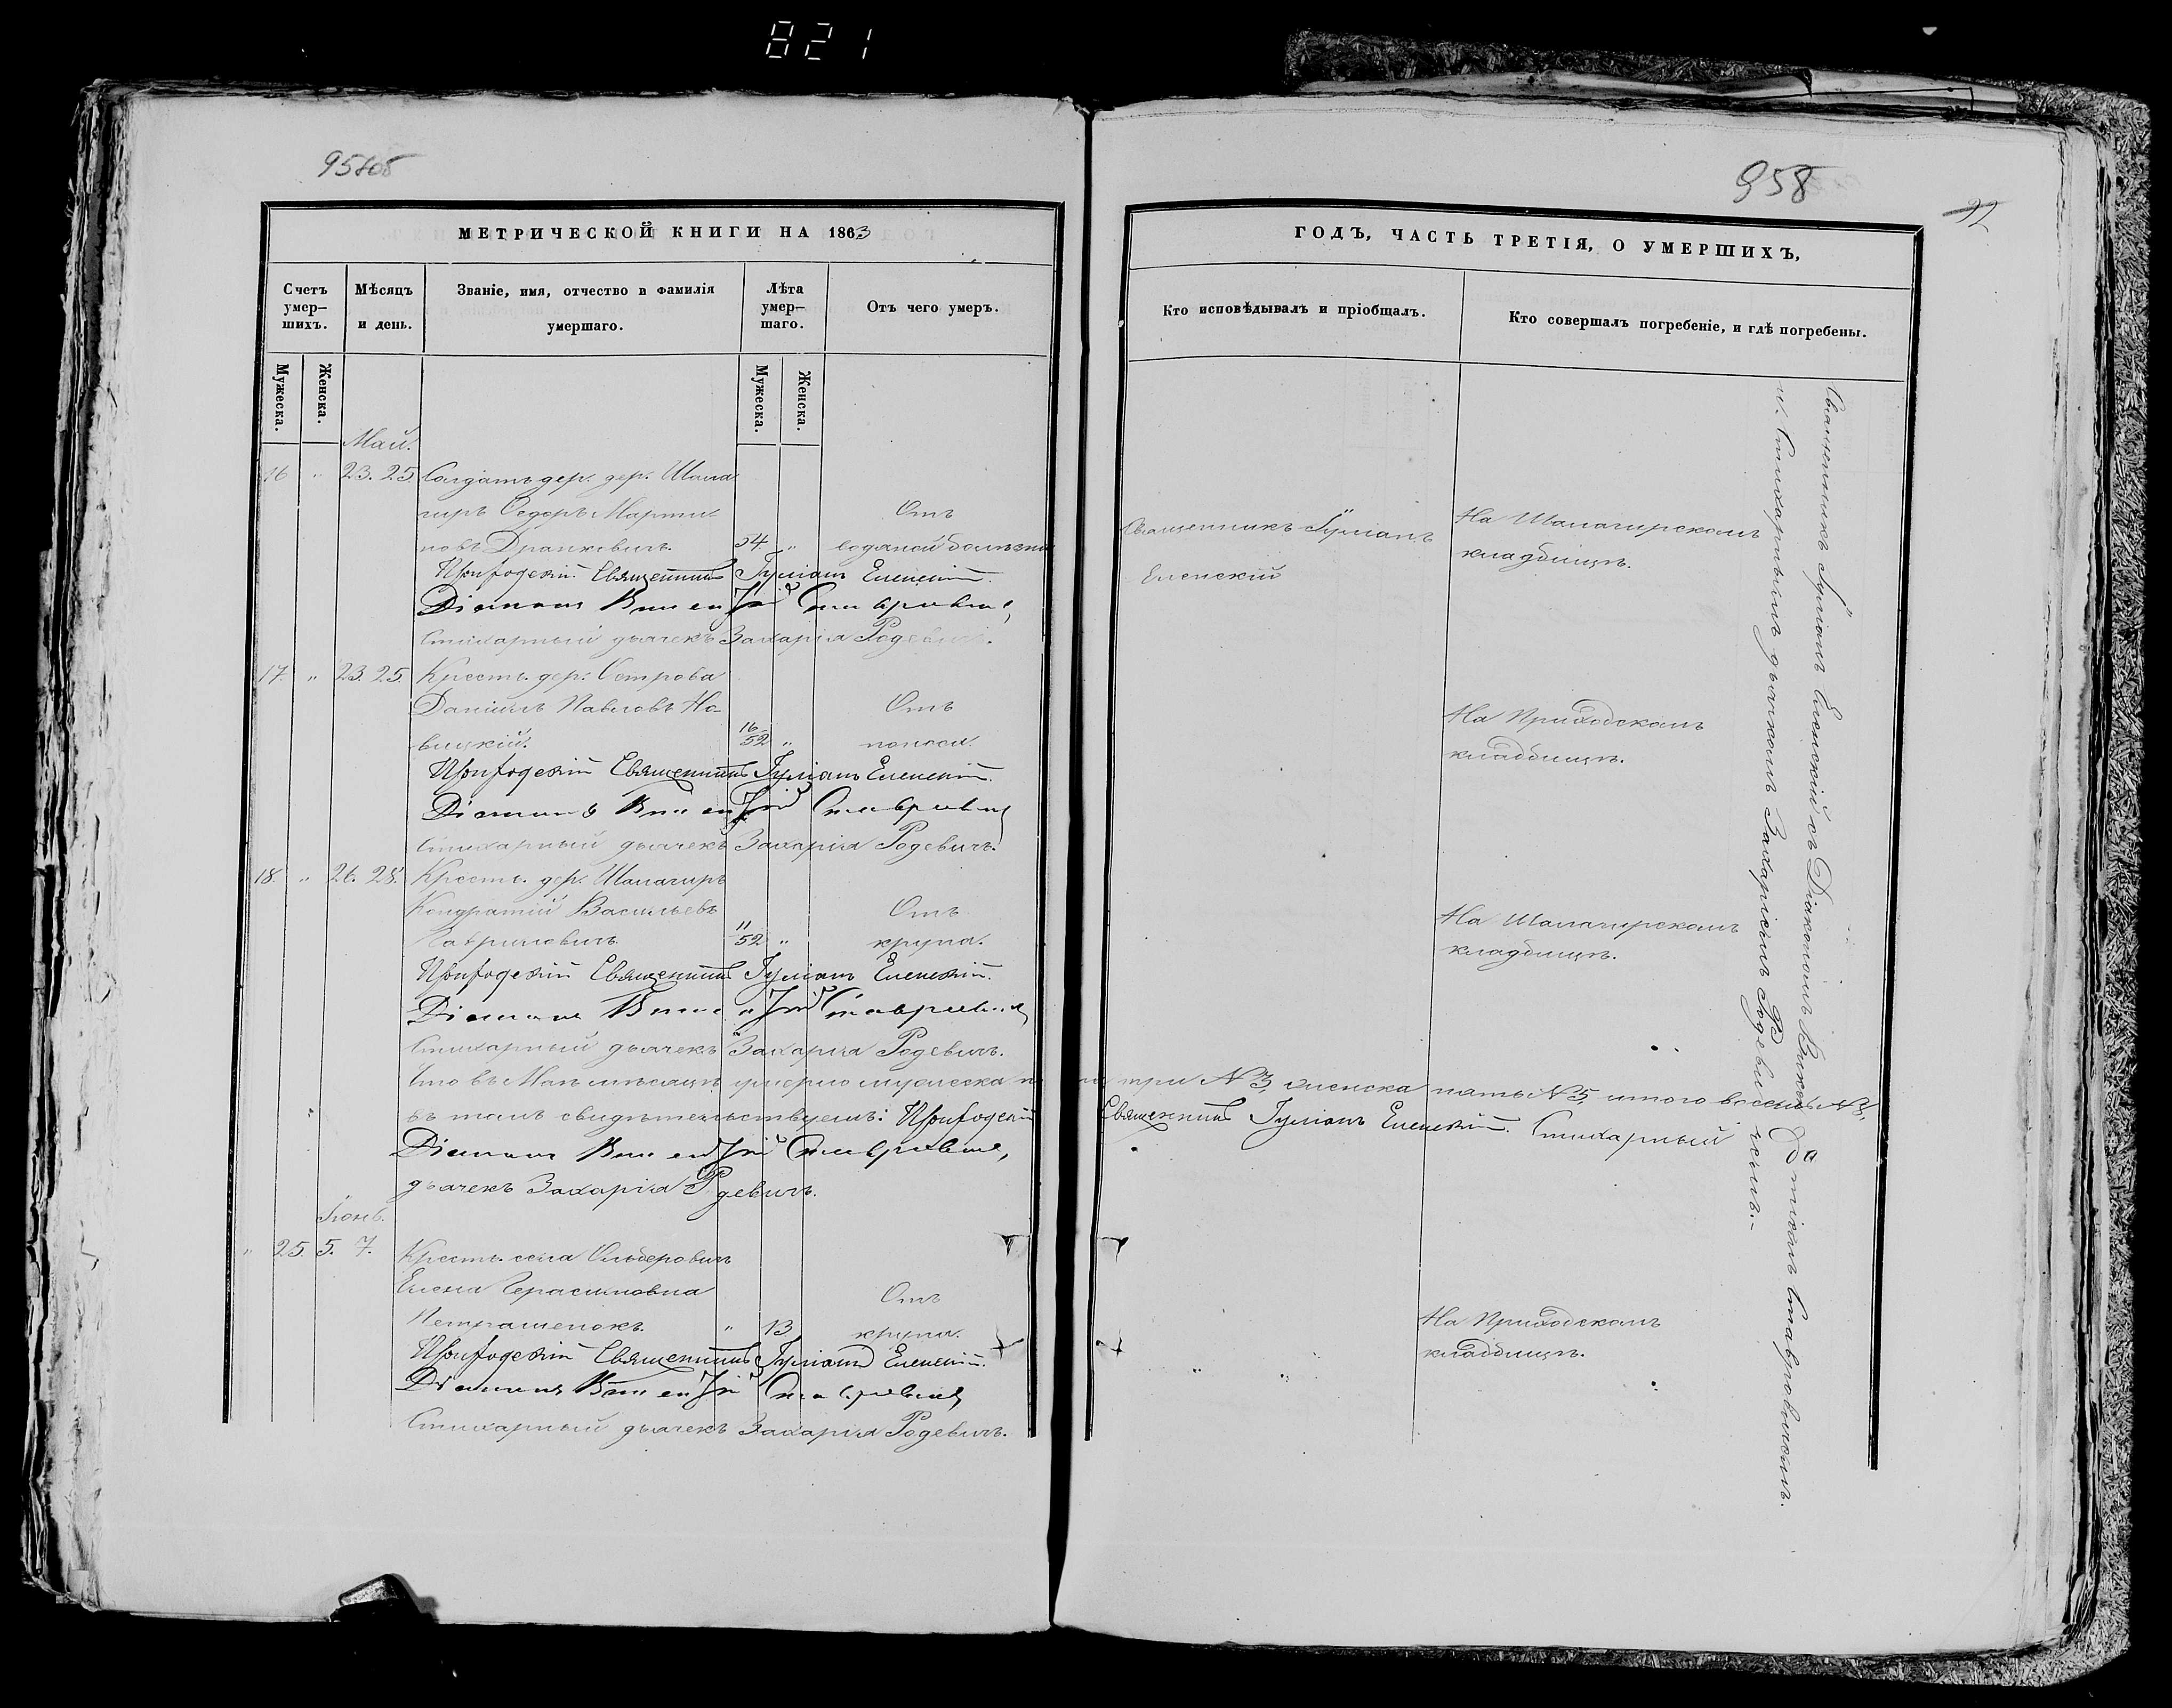 821
958об
МЕТРИЧЕСКОЙ КНИГИ НА 1863
Счетъ умер-шихъ.
Мѣсяцъ и день.
Званіе, имя, отчество и фамилія умершаго.
Лѣта умер-шаго.
Отъ чего умеръ.
Мужеска.
Женска.
Мужеска.
Женска.
Май.
16 " 23. 25. Солдатъ дер. дер. Шала
гиръ Ѳедоръ Марти
новъ 54. " Отъ водяной болѣзни
Приходскій Священникъ Іуліанъ Еленскій.
Діаконъ Викентій Ставровичъ
Стихарный дьячекъ Захарія Родевичъ.
17. " 23. 25. Крестъ. дер. Острова
Даніилъ Павловъ Но-
вицкій. 16/52 " Отъ поноса.
Приходскій Священникъ Іуліанъ Еленскій.
Діаконъ Викентій Ставровичъ
Стихарный дьячекъ Захарія Родевичъ.
18. " 26. 28. Крестъ. дер. Шалагиръ
Кондратій Васильевъ
Гавриловичъ. 11/52 " Отъ крупа.
Приходскій Священникъ Іуліанъ Еленскій.
Діаконъ Викентій Ставровичъ
Стихарный дьячекъ Захарія Родевичъ.
Что въ Маѣ мѣсяцѣ умерло мужеска пола три №3, женска пять №5, итого восемь №8,
въ томъ свидѣтельствуемъ: Приходскій Священникъ Іуліанъ Еленскій. Стихарный
Діаконъ Викентій Ставровичъ,
дьячекъ Захарія Родевичъ.
Іюнь.
" 25. 5. 7. Крестъ. села Ольберовичъ
Елена Герасимовна
Петрашенокъ. " 13 Отъ крупа.
Приходскій Священникъ Іуліанъ Еленскій.
Діаконъ Викентій Ставровичъ
Стихарный дьячекъ Захарія Родевичъ.
958
ГОДЪ, ЧАСТЬ ТРЕТІЯ, О УМЕРШИХЪ,
Кто исповѣдывалъ и пріобщалъ.
Кто совершалъ погребеніе, и гдѣ погребены.
Священникъ Іуліанъ
Еленскій
На Шалагирскомъ
кладбищѣ.
На Приходскомъ
кладбищѣ.
На Шалагирскомъ
кладбищѣ.
На Приходскомъ
кладбищѣ.
Священникъ Іуліанъ Еленскій съ Діакономъ Викентіемъ Ставровичемъ
и Стихарнымъ дьячкомъ Захаріемъ Родевичемъ.-